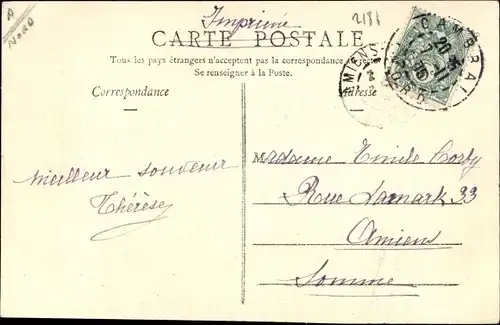 A
Nord
Imprimé
2181
CARTE POSTALE
Tous les pays étrangers n'acceptent pas la correspondance
Se renseigner à la Poste.
CAMBRAI
NORD
AMIENS
Correspondance
Adresse
Meilleur souvenir
Thérèse
Madame Emile
Rue Lamark 33
Amiens
Somme